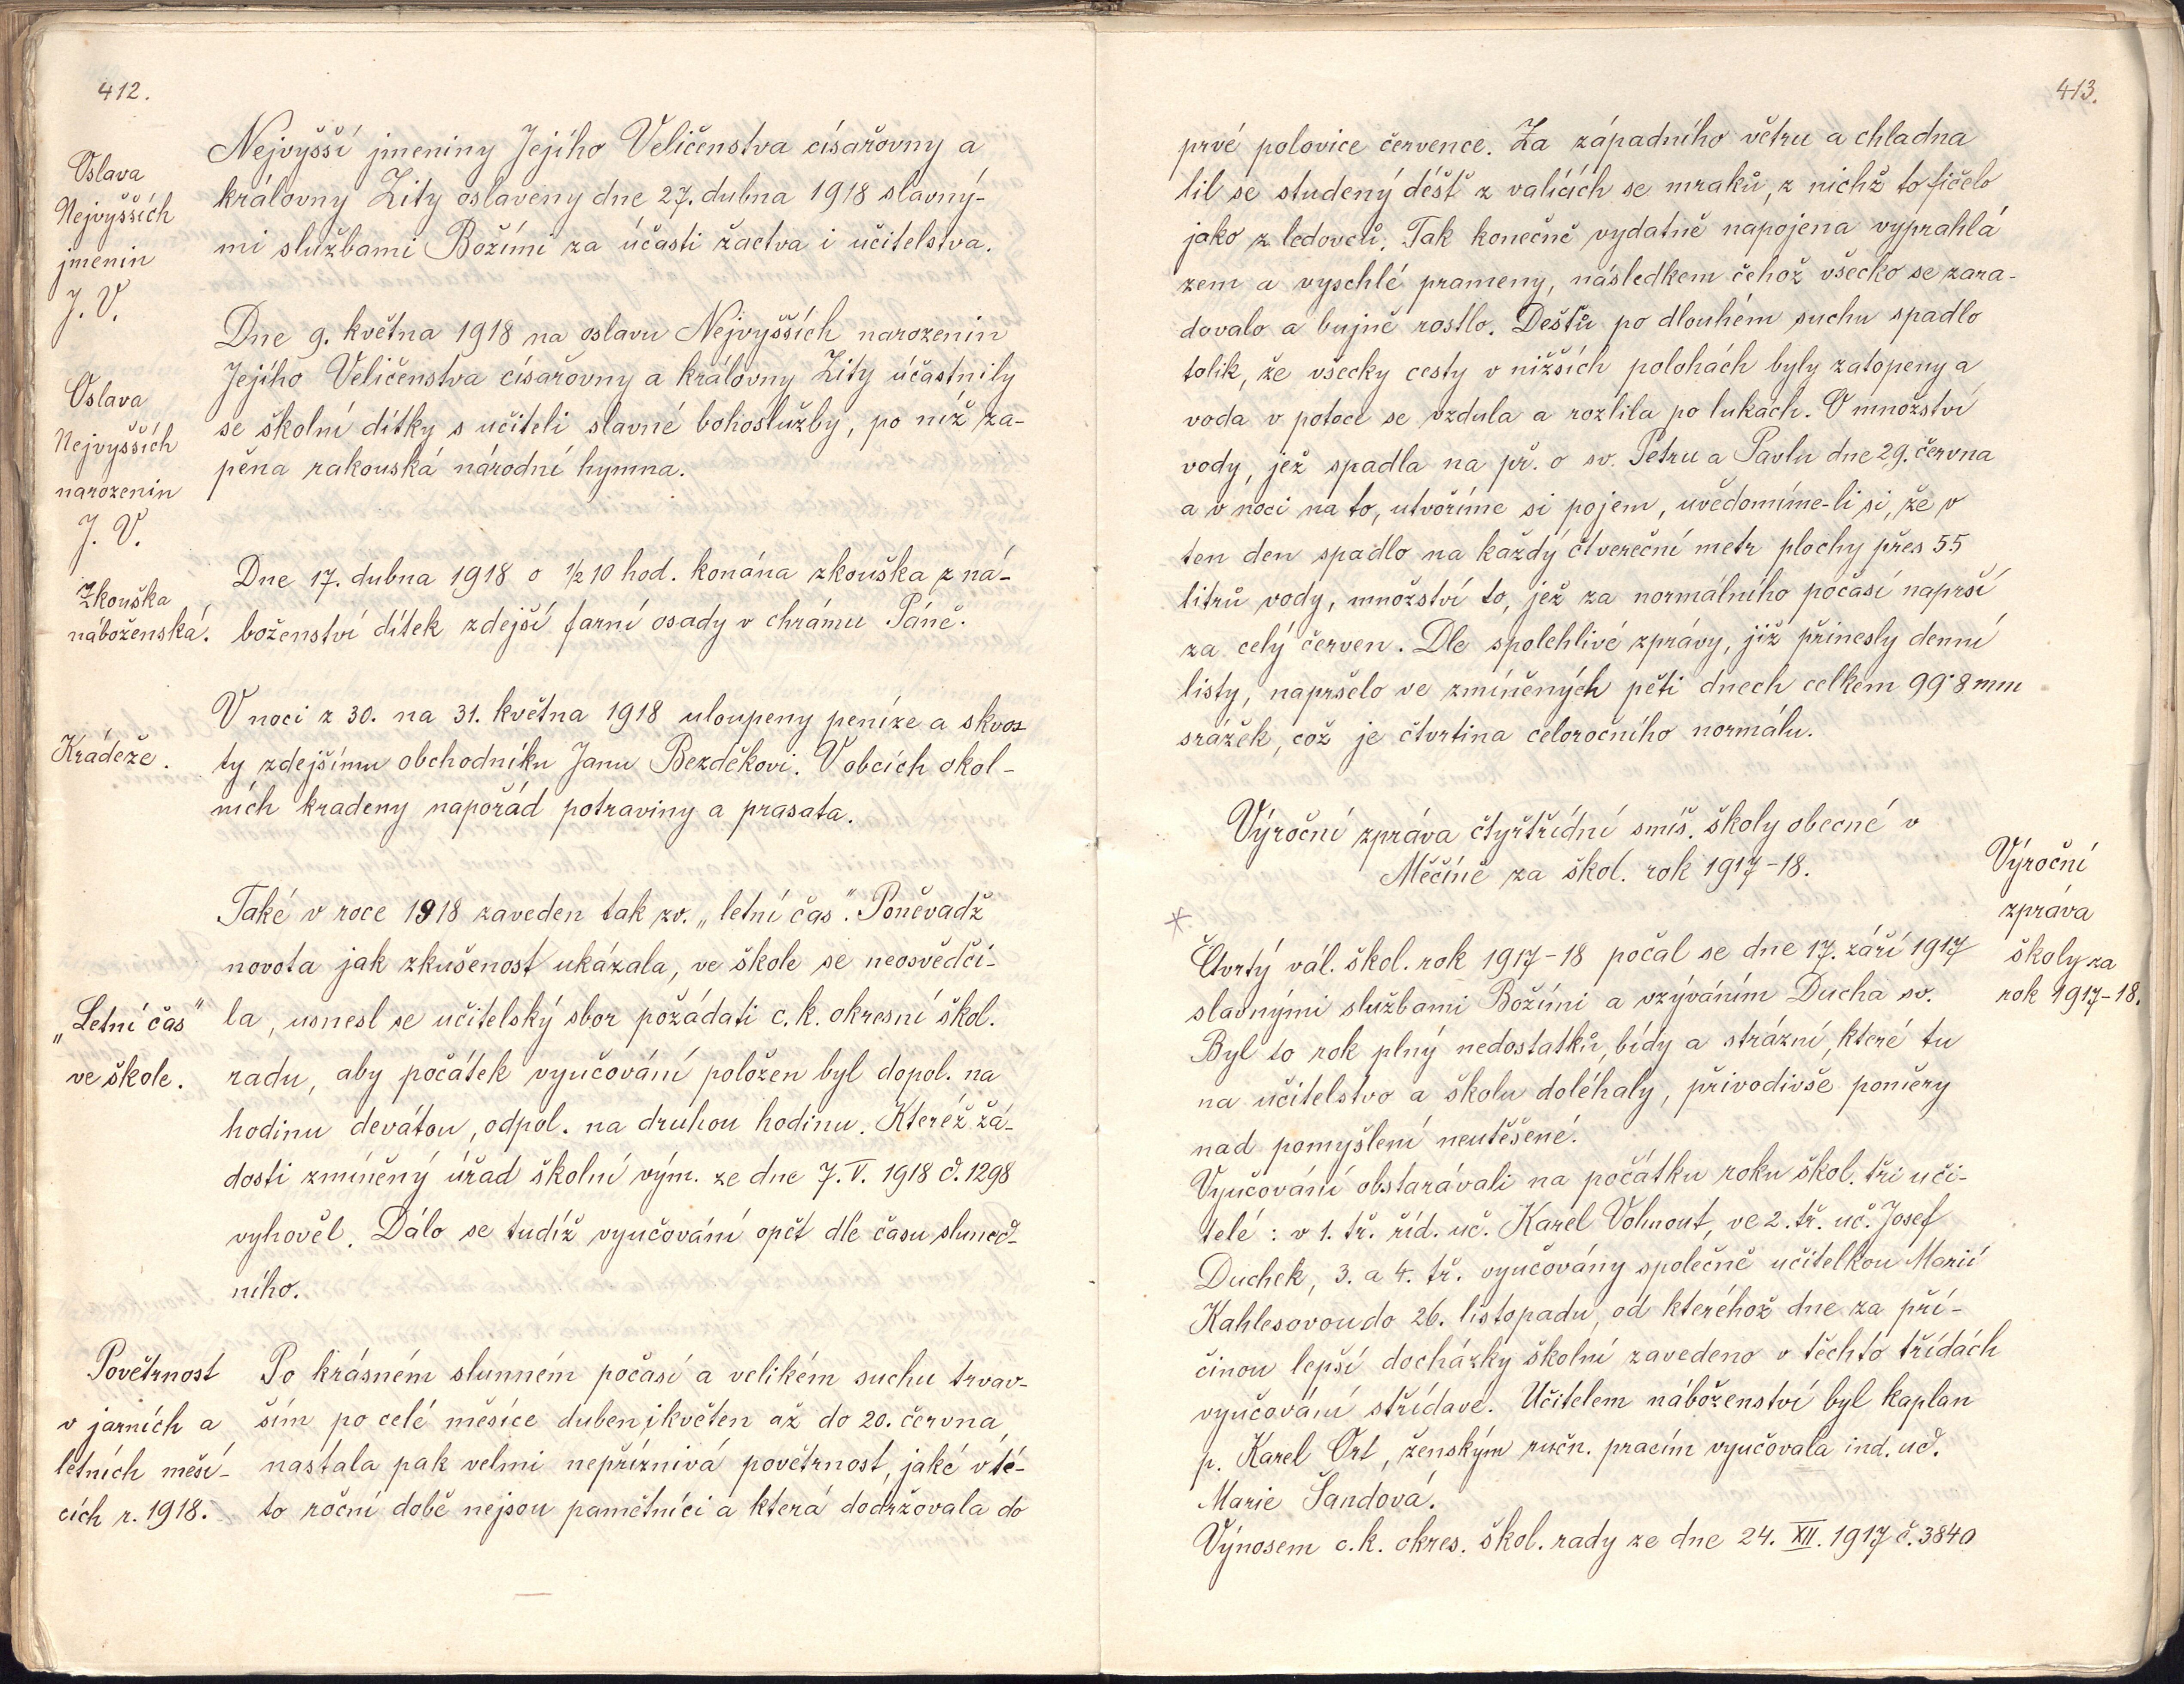 412.
Oslava
Nejvyšších
jmenin
J. V.
Nejvyšší jmeniny Jejího Veličenstva císařovny a
královny Zity oslaveny dne 27. dubna 1918 slavný-
mi službami Božími za účasti žactva i učitelstva.
Oslava
Nejvyšších
narozenin
J. V.
Dne 9. května 1918 na oslavu Nejvyšších narozenin
Jejího Veličenstva císařovny a královny Zity účastnily
se školní dítky s učiteli slavné bohoslužby, po níž za-
pěna rakouská národní hymna.
Zkouška
náboženská.
Dne 17. dubna 1918 o ½ 10 hod. konána zkouška z ná-
boženství dítek zdejší farní osady v chrámu Páně.
Krádeže.
V noci z 30. na 31. května 1918 uloupeny peníze a skvos-
ty zdejšímu obchodníku Janu Bezděkovi. V obcích okol-
ních kradeny napořád potraviny a prasata.
„Letní čas"
ve škole.
Také v roce 1918 zaveden tak zv. „letní čas". Poněvadž
novota jak zkušenost ukázala, ve škole se neosvědči-
la, usnesl se učitelský sbor požádati c. k. okresní škol.
radu, aby počátek vyučování položen byl dopol. na
hodinu devátou, odpol. na druhou hodinu. Kteréž žá-
dosti zmíněný úřad školní vým. ze dne 7. V. 1918 č. 1298
vyhověl. Dálo se tudíž vyučování opět dle času sluneč-
ního.
Povětrnost
v jarních a
letních měsí-
cích r. 1918.
Po krásném slunném počasí a velikém suchu trvav-
ším po celé měsíce duben, květen až do 20. června,
nastala pak velmi nepříznivá povětrnost, jaké v té-
to roční době nejsou pamětníci a která dodržovala do
413.
prvé polovice července. Za západního větru a chladna
lil se studený déšť z valících se mraků, z nichž to fičelo
jako z ledovců. Tak konečně vydatně napojena vyprahlá
zem a vyschlé prameny, následkem čehož všecko se zara-
dovalo a bujně rostlo. Dešťů po dlouhém suchu spadlo
tolik, že všecky cesty v nižších polohách byly zatopeny a
voda v potoce se vzdula a rozlila po lukách. O množství
vody, jež spadla na př. o sv. Petru a Pavlu dne 29. června
a v noci na to, utvoříme si pojem, uvědomíme-li si, že v
ten den spadlo na každý čtvereční metr plochy přes 55
litrů vody, množství to, jež za normálního počasí naprší
za celý červen. Dle spolehlivé zprávy, již přinesly denní
listy, napršelo ve zmíněných pěti dnech celkem 99·8 mm
srážek, což je čtvrtina celoročního normálu.
Výroční zpráva čtyřtřídní smíš. školy obecné v
Měčíně za škol. rok 1917-18.
Výroční
zpráva
školy za
rok 1917-18.
*
Čtvrtý vál. škol. rok 1917-18 počal se dne 17. září 1917
slavnými službami Božími a vzýváním Ducha sv.
Byl to rok plný nedostatků, bídy a strázní, které tu
na učitelstvo a školu doléhaly, přivodivše poměry
nad pomyšlení neutěšené.
Vyučování obstarávali na počátku roku škol. tři uči-
telé: v 1. tř. říd. uč. Karel Vohnout, ve 2. tř. uč. Josef
Duchek, 3. a 4. tř. vyučovány společně učitelkou Marií
Kahlesovou do 26. listopadu, od kteréhož dne za pří-
činou lepší docházky školní zavedeno v těchto třídách
vyučování střídavé. Učitelem náboženství byl kaplan
p. Karel Ort, ženským ručn. pracím vyučovala ind. uč.
Marie Šandová.
Výnosem c. k. okres. škol. rady ze dne 24. XII. 1917 č. 3840